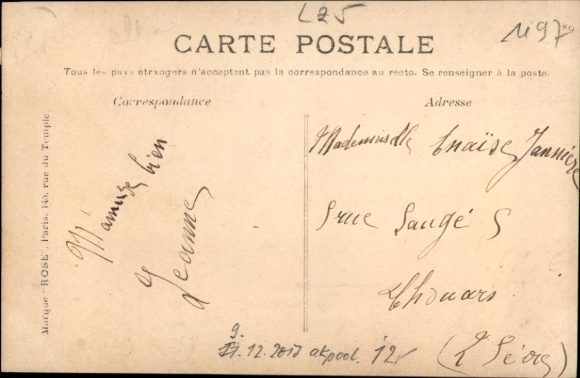 L25
1197
CARTE POSTALE
Tous les pays étrangers n'acceptent pas la correspondance au recto. Se renseigner à la poste.
Correspondance
Adresse
M'amuse bien
Jeanne
Mademoiselle Enaïse Jannière
5 rue Saugé 5
Thouars
(2 Sèvres)
Marque "ROSE", Paris, 145, rue du Temple.
9.
12.2017 12